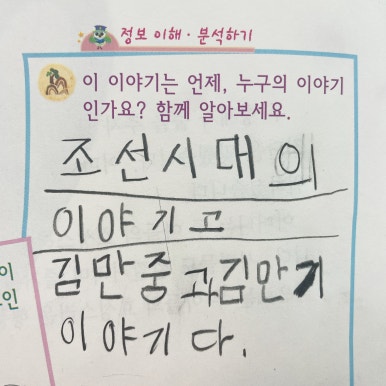 정보 이해·분석하기
이 이야기는 언제, 누구의 이야기
인가요? 함께 알아보세요.
조선시대의
이야기고
김만중과김만기
이야기다.
이
인